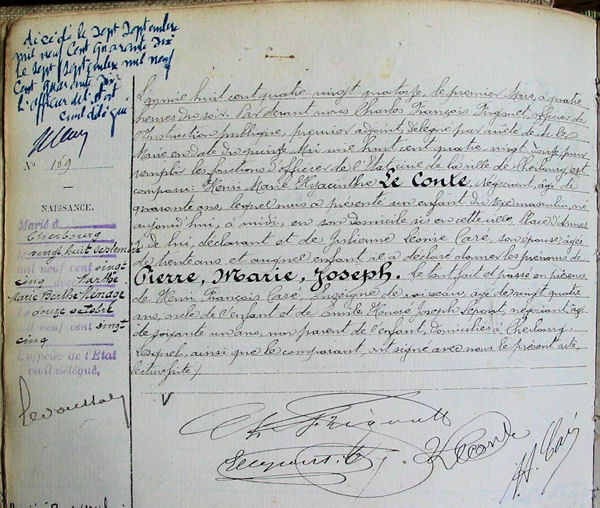 décédé le sept septembre
mil neuf Cent Quarante Dix
le sept septembre mil neuf
Cent quarante Dix
L'officier de l'état
Civil délégué
N° 169
NAISSANCE.
Marié à
Cherbourg
le vingt huit septembre
mil neuf cent vingt
cinq avec Marthe
Marie Berthe
Le douze octobre
mil neuf cent vingt
cinq
L'officier de l'État
civil délégué,
L'année huit cent quatre vingt quatorze, le premier Mars, à quatre
heures du soir. Par devant nous Charles François Frigoult, officier de
l'Instruction publique, premier adjoint, délégué par arrêté de M. le
Maire en date du quinze Mai mil huit cent quatre vingt douze, pour
remplir les fonctions d'officier de l'Etat civil de la ville de Cherbourg, est
comparu : Henri Marie Hyacinthe Le Conte, Négociant, âgé de
quarante ans, lequel nous a présenté un enfant du sexe masculin, né
aujourd'hui, à midi, en son domicile sis en cette ville, Place d'Armes
de lui, déclarant et de Julienne Léonie Care, son épouse, âgée
de trente ans et auquel enfant il a déclaré donner les prénoms de
Pierre, Marie, Joseph. Le tout fait et passé en présence
de Henri François Care, Enseigne de vaisseau, âgé de vingt quatre
ans, oncle de l'enfant et de Aimé Honoré Joseph, négociant, âgé
de soixante un ans, non parent de l'enfant, domiciliés à Cherbourg.
Lesquels, ainsi que le comparant, ont signé avec nous le présent acte
lecture faite /.
Ch. Frigoult
H Le Conte